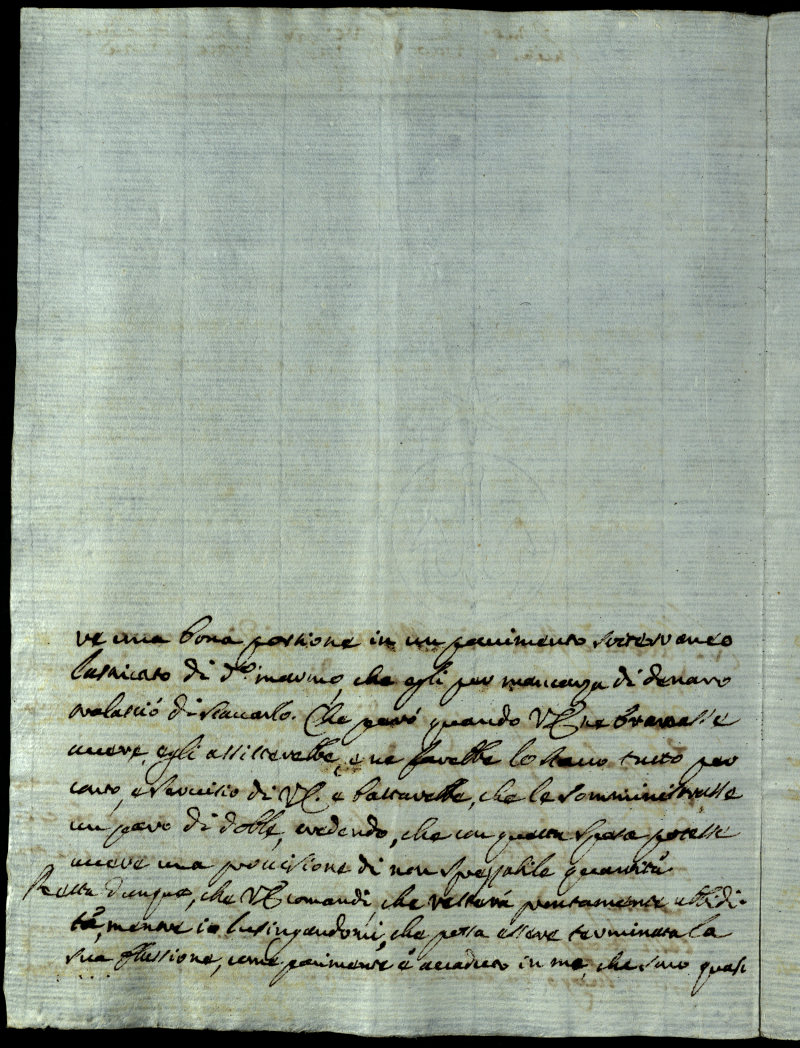 ve una bona porzione in un pavimento sotterraneo
lastricato di d.º marmo, che egli per mancanza di denaro
tralasciò di staccarlo. Che però quando VS. ne bramasse
avere, egli assisterebbe, e ne farebbe lo stacco tutto per
conto, e servitio di VS. e bastarebbe, che le somministrasse
un paro di doble, credendo, che con questa spesa potesse
avere una provisione di non sprezzabile quantità.
Resta dunque, che VS. comandi, che restarà prontamente obbedi-
tà, mentre io lusingandomi, che possa essere terminata la
sua flussione, come parimente è accaduto in me, che sono quasi